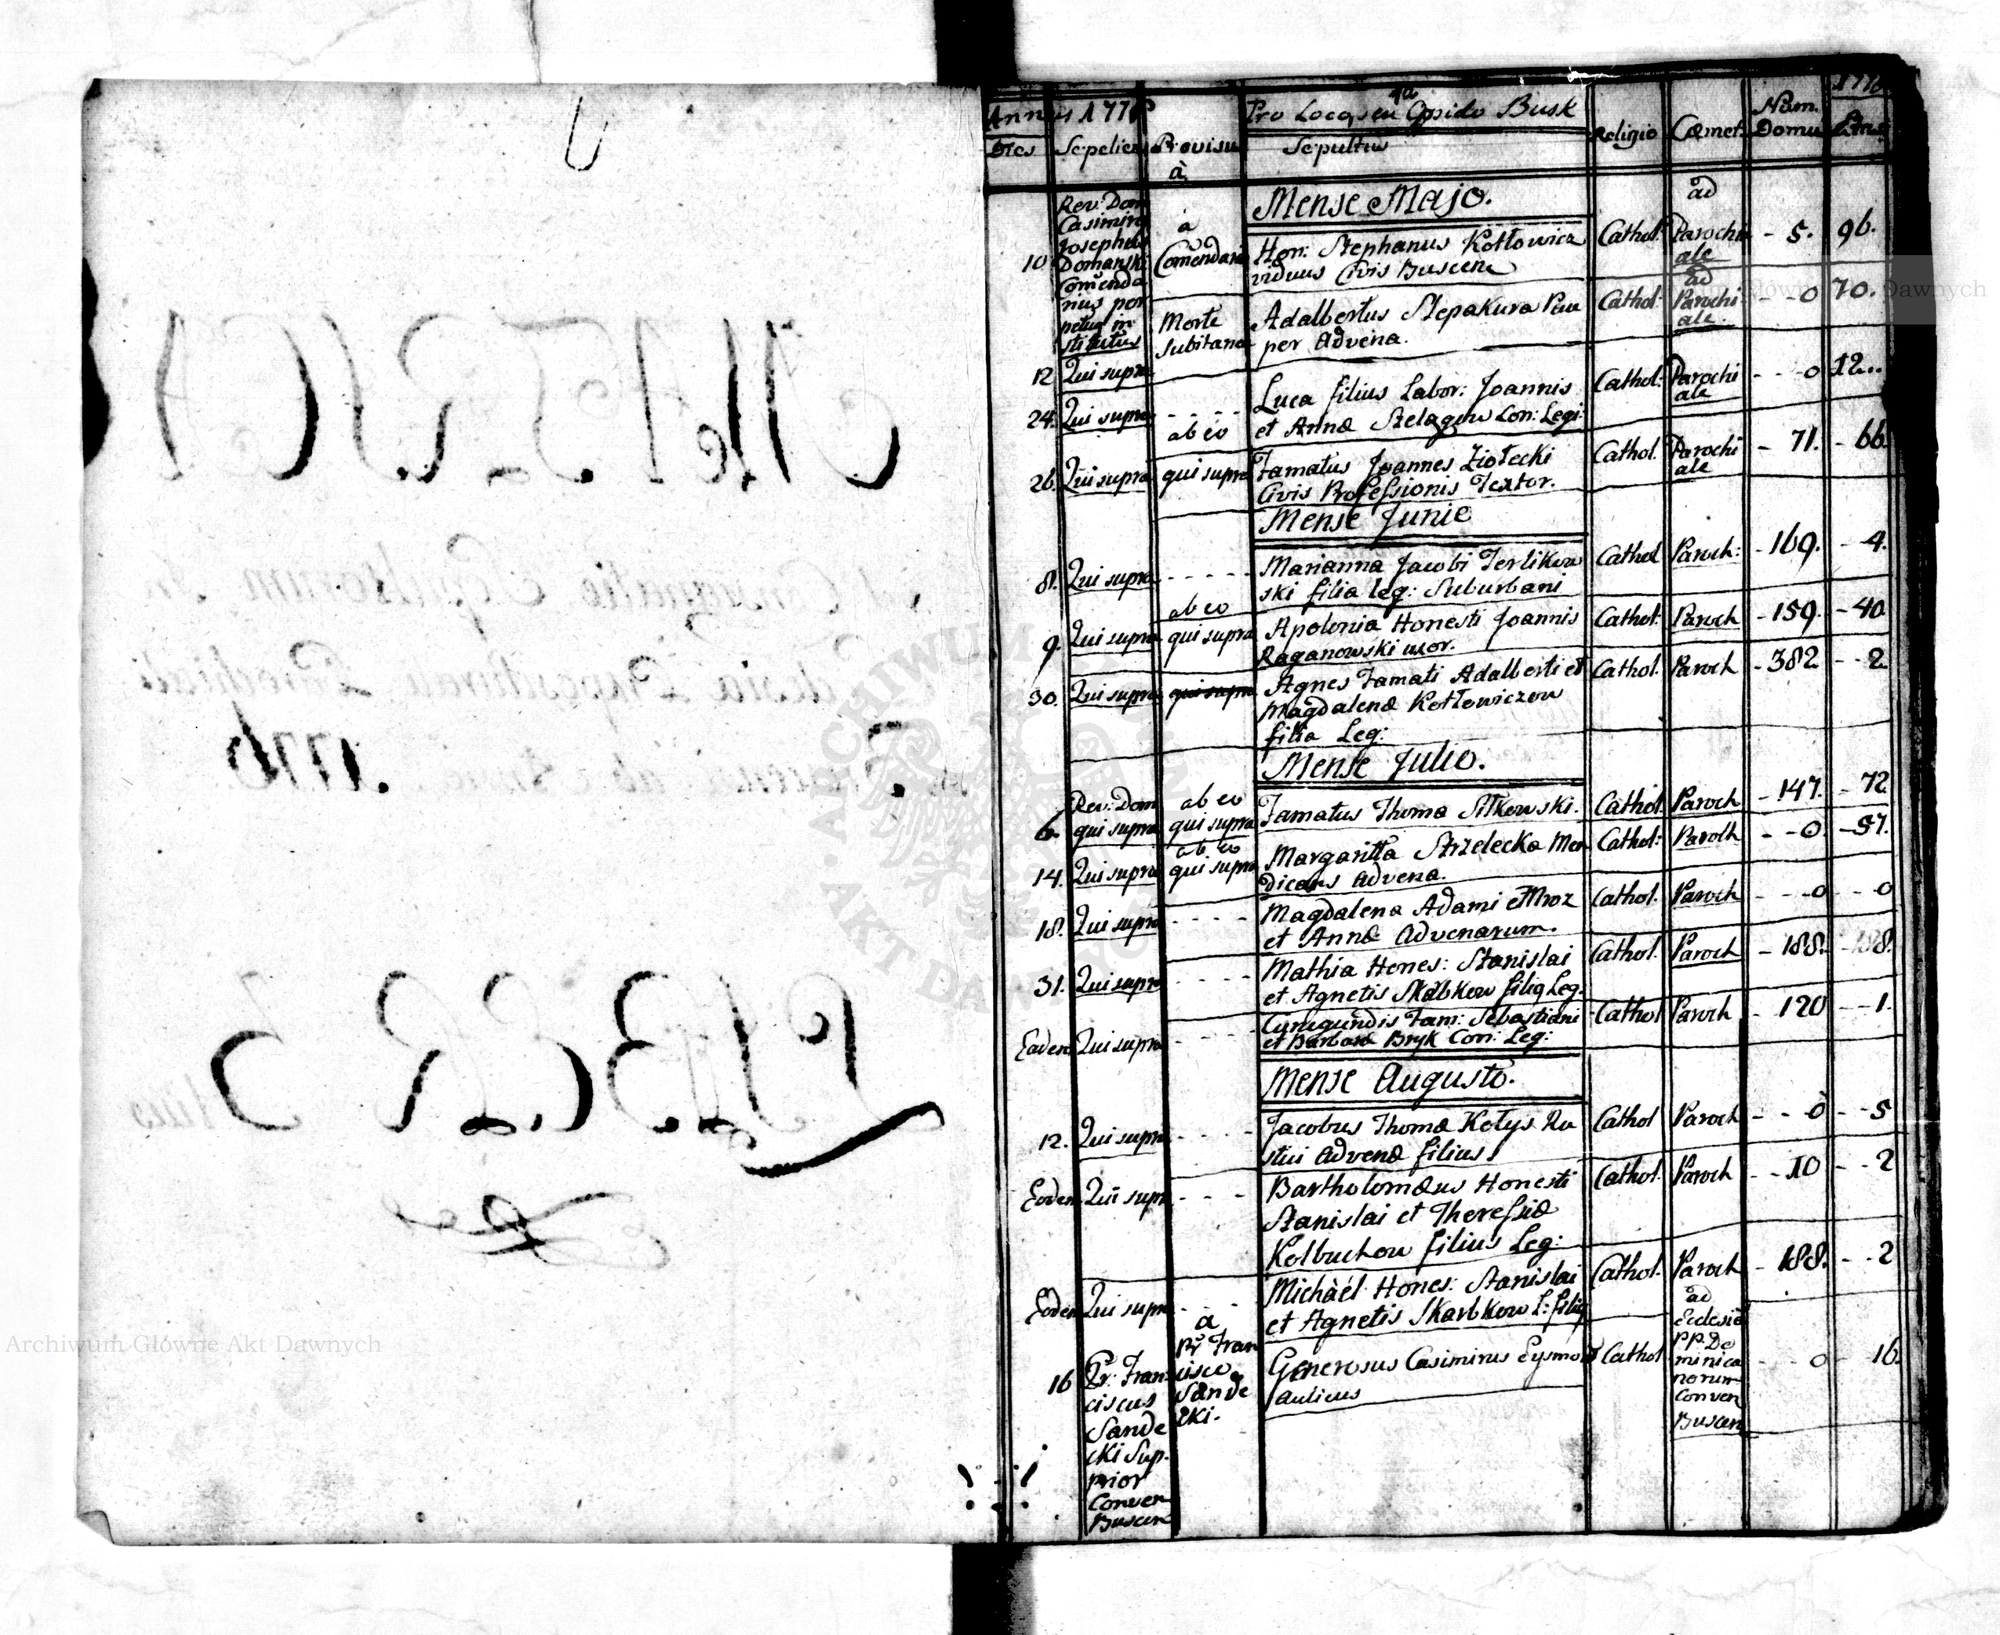 Annus 1776
Pro Loco seu Oppido Busk
Religio
Cœmet.
Num. Domu
1776
Ætas
Dies
Sepeliens
Provisus à
Sepultus
Mense Majo.
10
Rev: Dom
Casimirus
Josephus
Domanski
Comenda
rius per
petuus in
stitutus
à
Comendario
Hon: Stephanus Kotłowicz
viduus Civis Buscen
Cathol:
ad
Parochi
ale
- 5.
96.
12
Qui supra
Morte
subitanea
Adalbertus Stepakura Pau
per Advena.
Cathol:
ad
Parochi
ale.
- - 0
70.
24.
Qui supra
- - - -
Luca filius Labor: Joannis
et Annæ Szelagow Con: Legi:
Cathol:
Parochi
ale
- - 0
12..
26.
Qui supra
ab eo
qui supra
Famatus Joannes Ziołecki
Civis Professionis Textor.
Cathol.
Parochi
ale
- 71.
- 66.
Mense Junie
8.
Qui supra
- - - - -
Marianna Jacobi Terlikow
ski filia leg: Suburbani
Cathol
Paroch:
- 169.
- 4.
9.
Qui supra
ab eo
qui supra
Apolonia Honesti Joannis
Raganowski uxor.
Cathol:
Paroch
- 159.
- 40.
30.
Qui supra
qui supra
Agnes Famati Adalberti et
Magdalenæ Kotłowiczow
filia Leg:
Cathol.
Paroch
- 382
- - 2
Mense Julio.
6.
Rev: Dom
qui supra
ab eo
qui supra
Famatus Thoma Sitkowski.
Cathol.
Paroch
- 147.
- 72.
14.
Qui supra
ab eo
qui supra
Margaritta Strzelecka Men
dicans Advena.
Cathol:
Paroch
- - 0.
- 57.
18.
Qui supra
- - - -
Magdalena Adami Mroz
et Annæ Advenarum.
Cathol.
Paroch
- - - 0
- - 0
31.
Qui supra
- - - -
Mathia Hones: Stanislai
et Agnetis Skarbkow filiq Leg.
Cathol.
Paroch
- 188.
- 188.
Eadem
Qui supra
- - - -
Cunegundis Fam: Sebastiani
et Barbaræ Bryk Con: Leg:
Cathol
Paroch
- 120
- - 1.
Mense Augusto.
12.
Qui supra
- - - -
Jacobus Thomæ Kotys Ru
stici Advenæ filius
Cathol
Paroch
- - 0
- - 5
Eodem
Qui supra
- - -
Bartholomæus Honesti
Stanislai et Theressiæ
Kolbuchow filius Leg:
Cathol.
Paroch
- - 10
- - 2
Eodem
Qui supra
- - -
Michàél Hones: Stanislai
et Agnetis Skarbkow L: filiq
Cathol.
Paroch
- 188.
- - 2
16
Pr: Fran
ciscus
Sande
cki Sup-
prior
Conven
Buscen
à
Pr Fran
cisco
Sande
cki.
Generosus Casimirus
Aulicus
Cathol
ad
Ecclesia
PP. Do
minica
norum
Conven
Buscen
- - 0
16.
METRICA
1776.
LIBER
Archiwum Główne Akt Dawnych
ARCHIWUM GŁÓWNE AKT DAWNYCH